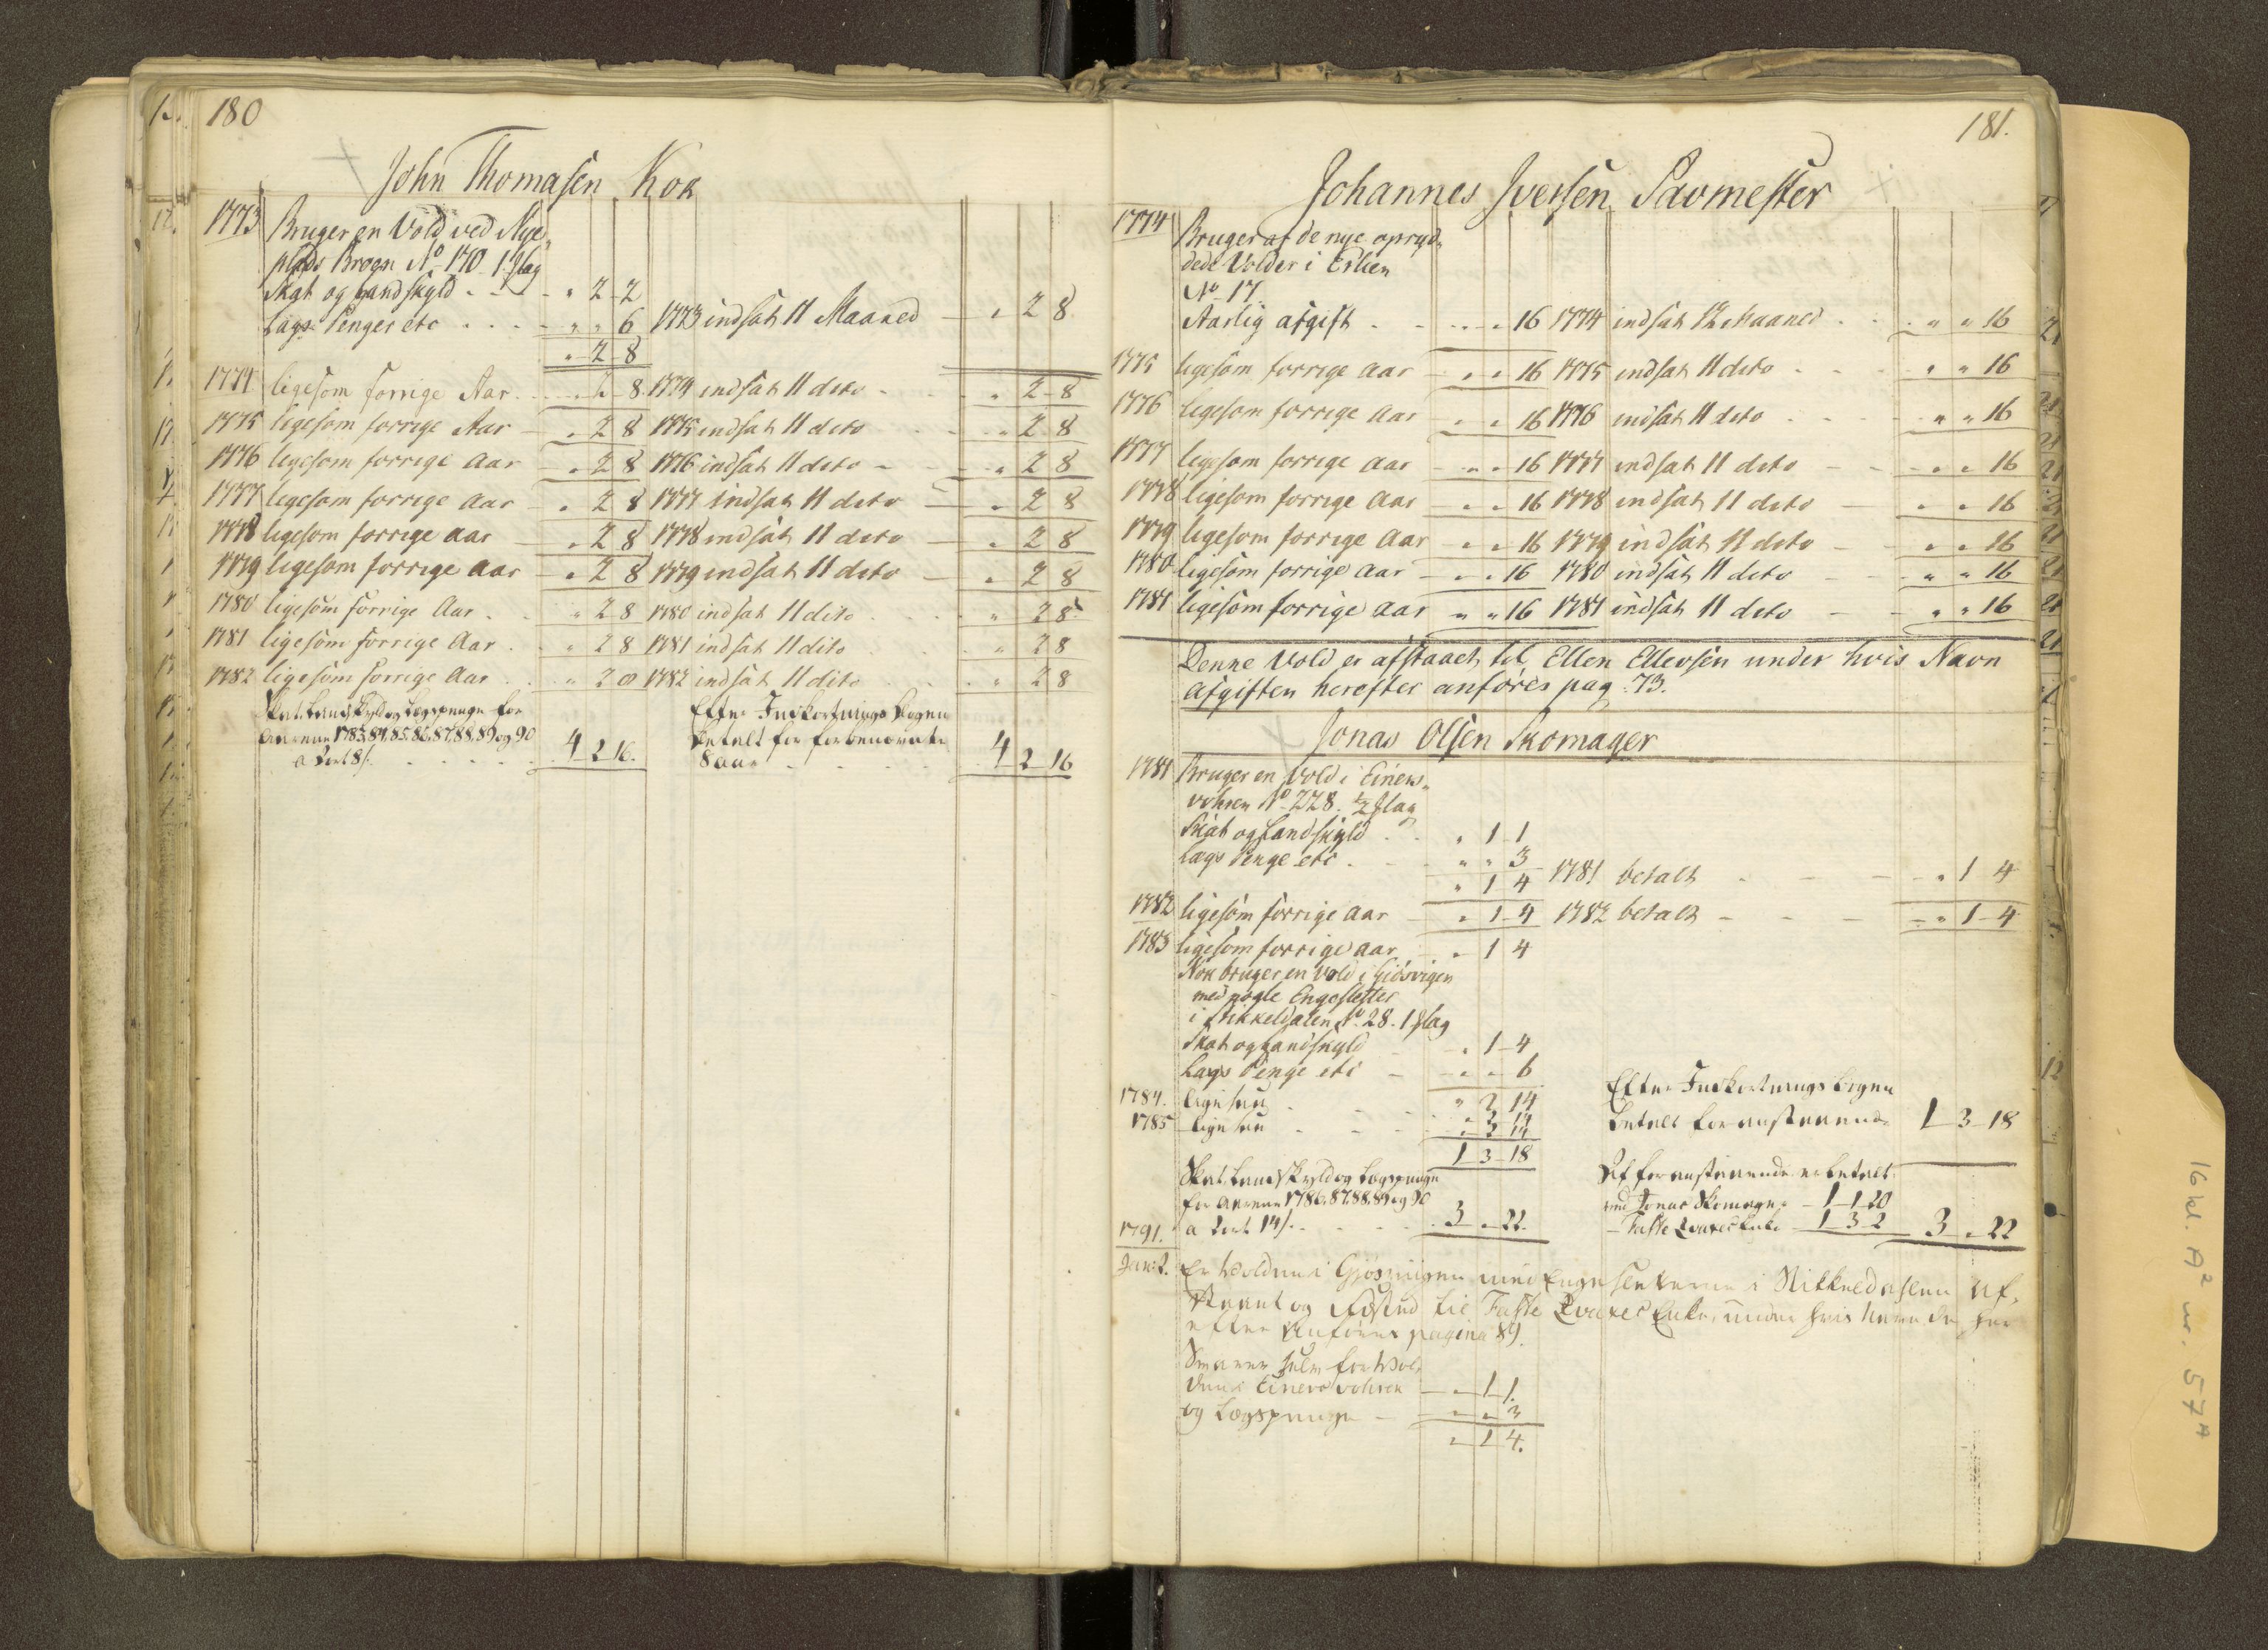 180
John Thomasen Kok
1773 Bruger en Vold ved Nye
plads Broen No 170 1. slag
Skat og Landskyld - - - " 2 - 2
Lags Penger etc . . . - " " 6 1773 indsat 11 Maaned - " 2 8
" 2 - 8
1774 ligesom forrige Aar. - - " 2 - 8 1774 indsat 11 dito - " 2 - 8
1775 ligesom forrige Aar - " 2 8 1775 indsat 11 dito " 2 8
1776 ligesom forrige Aar - " 2 8 1776 indsat 11 dito - - " 2 8
1777 ligesom forrige Aar - " 2 8 1777 indsat 11 dito - " 2 8
1778 ligesom forrige aar - " 2 8 1778 indsat 11 dito - " 2 8
1779 ligesom forrige aar - " 2 8 1779 indsat 11 dito - " 2 8
1780 ligesom forrige Aar . . " 2 8 1780 indsat 11 dito . . " 2 8
1781 ligesom forrige Aar . . " 2 8 1781 indsat 11 dito . . " 2 8
1782 ligesom forrige Aar . . " 2 8 1782 indsat 11 dito . . " 2 8
Skat. Landskyld og Lægspenge for Efter Indkortnings Bogen
Aarene 1783, 84, 85, 86, 87, 88, 89 og 90 betalt for forbenævnte
a 2 ort 8 s. . . . . 4 2 16. 8 aar - - - 4 2 16
181.
Johannes Iversen Savmester
1774 Bruger af de nye opryd„
dede Volder i
No 17.
Aarlig afgift . - . . . " 16 1774 indsat 12 Maaned . . " " 16
1775 ligesom forrige aar - " " 16 1775 indsat 11 dito . . - " " 16
1776 ligesom forrige Aar - " " 16 1776 indsat 11 dito . . . " " 16
1777 ligesom forrige aar - " " 16 1777 indsat 11 dito - - " " 16
1778 ligesom forrige Aar - " " 16 1778 indsat 11 dito - " " 16
1779 ligesom forrige Aar - " " 16 1779 indsat 11 dito - " " 16
1780 ligesom forrige aar - " " 16 1780 indsat 11 dito - " " 16
1781 ligesom forrige aar " " 16 1781 indsat 11 dito - - " " 16
Denne Vold er afstaaet til Ellen Ellevsen under hvis Navn
Afgiften herefter anføres pag: 73.
Jonas Olsen Skomager
1781 Bruger en Vold i Einers„
vohren No 228. ½ slag
Skat og Landskyld . . " 1 1
Lags Penge etc . - " " 3
" 1 4 1781 betalt - - - " 1 4
1782 ligesom forrige aar - " 1 - 4 1782 betalt - - - " 1 - 4
1783 ligesom forrige aar - " 1 4
Nok bruger en Vold i Giøsvigen
med nogle Engesletter
i Stikkeldalen No 28. 1 slag
Skat og Landskyld - " 1 - 4
Lags Penge etc - " " 6
" 2 14 Efter Indkortnings Bogen
1784. ligesaa - - - " 2 14 betalt for anstaaende 1 - 3 - 18
1785 ligesaa . - - - " 2 14
1 - 3 - 18
Skat. Landskyld og Lægspenge Af foranstaaende er betalt
for Aarene 1786, 87, 88, 89 og 90 ved Jonas Skomager - 1 - 1 - 20
a 2 ort 14 s. . . . . 3 " 22. - Enke 1 - 3 - 2 3 " 22
1791.
Janr: 2. Er Volden i Giøsvigen med Engesletterne i Stikkeldahlen af„
staaet og til Enke, under hvis Navn de her
efter Anføres pagina 89.
Svarer selv for Vol„
den i Einersvohren - " 1 1.
og Lægspenge - " " 3
" 1 4.
16 kl. A² nr. 57ᴬ